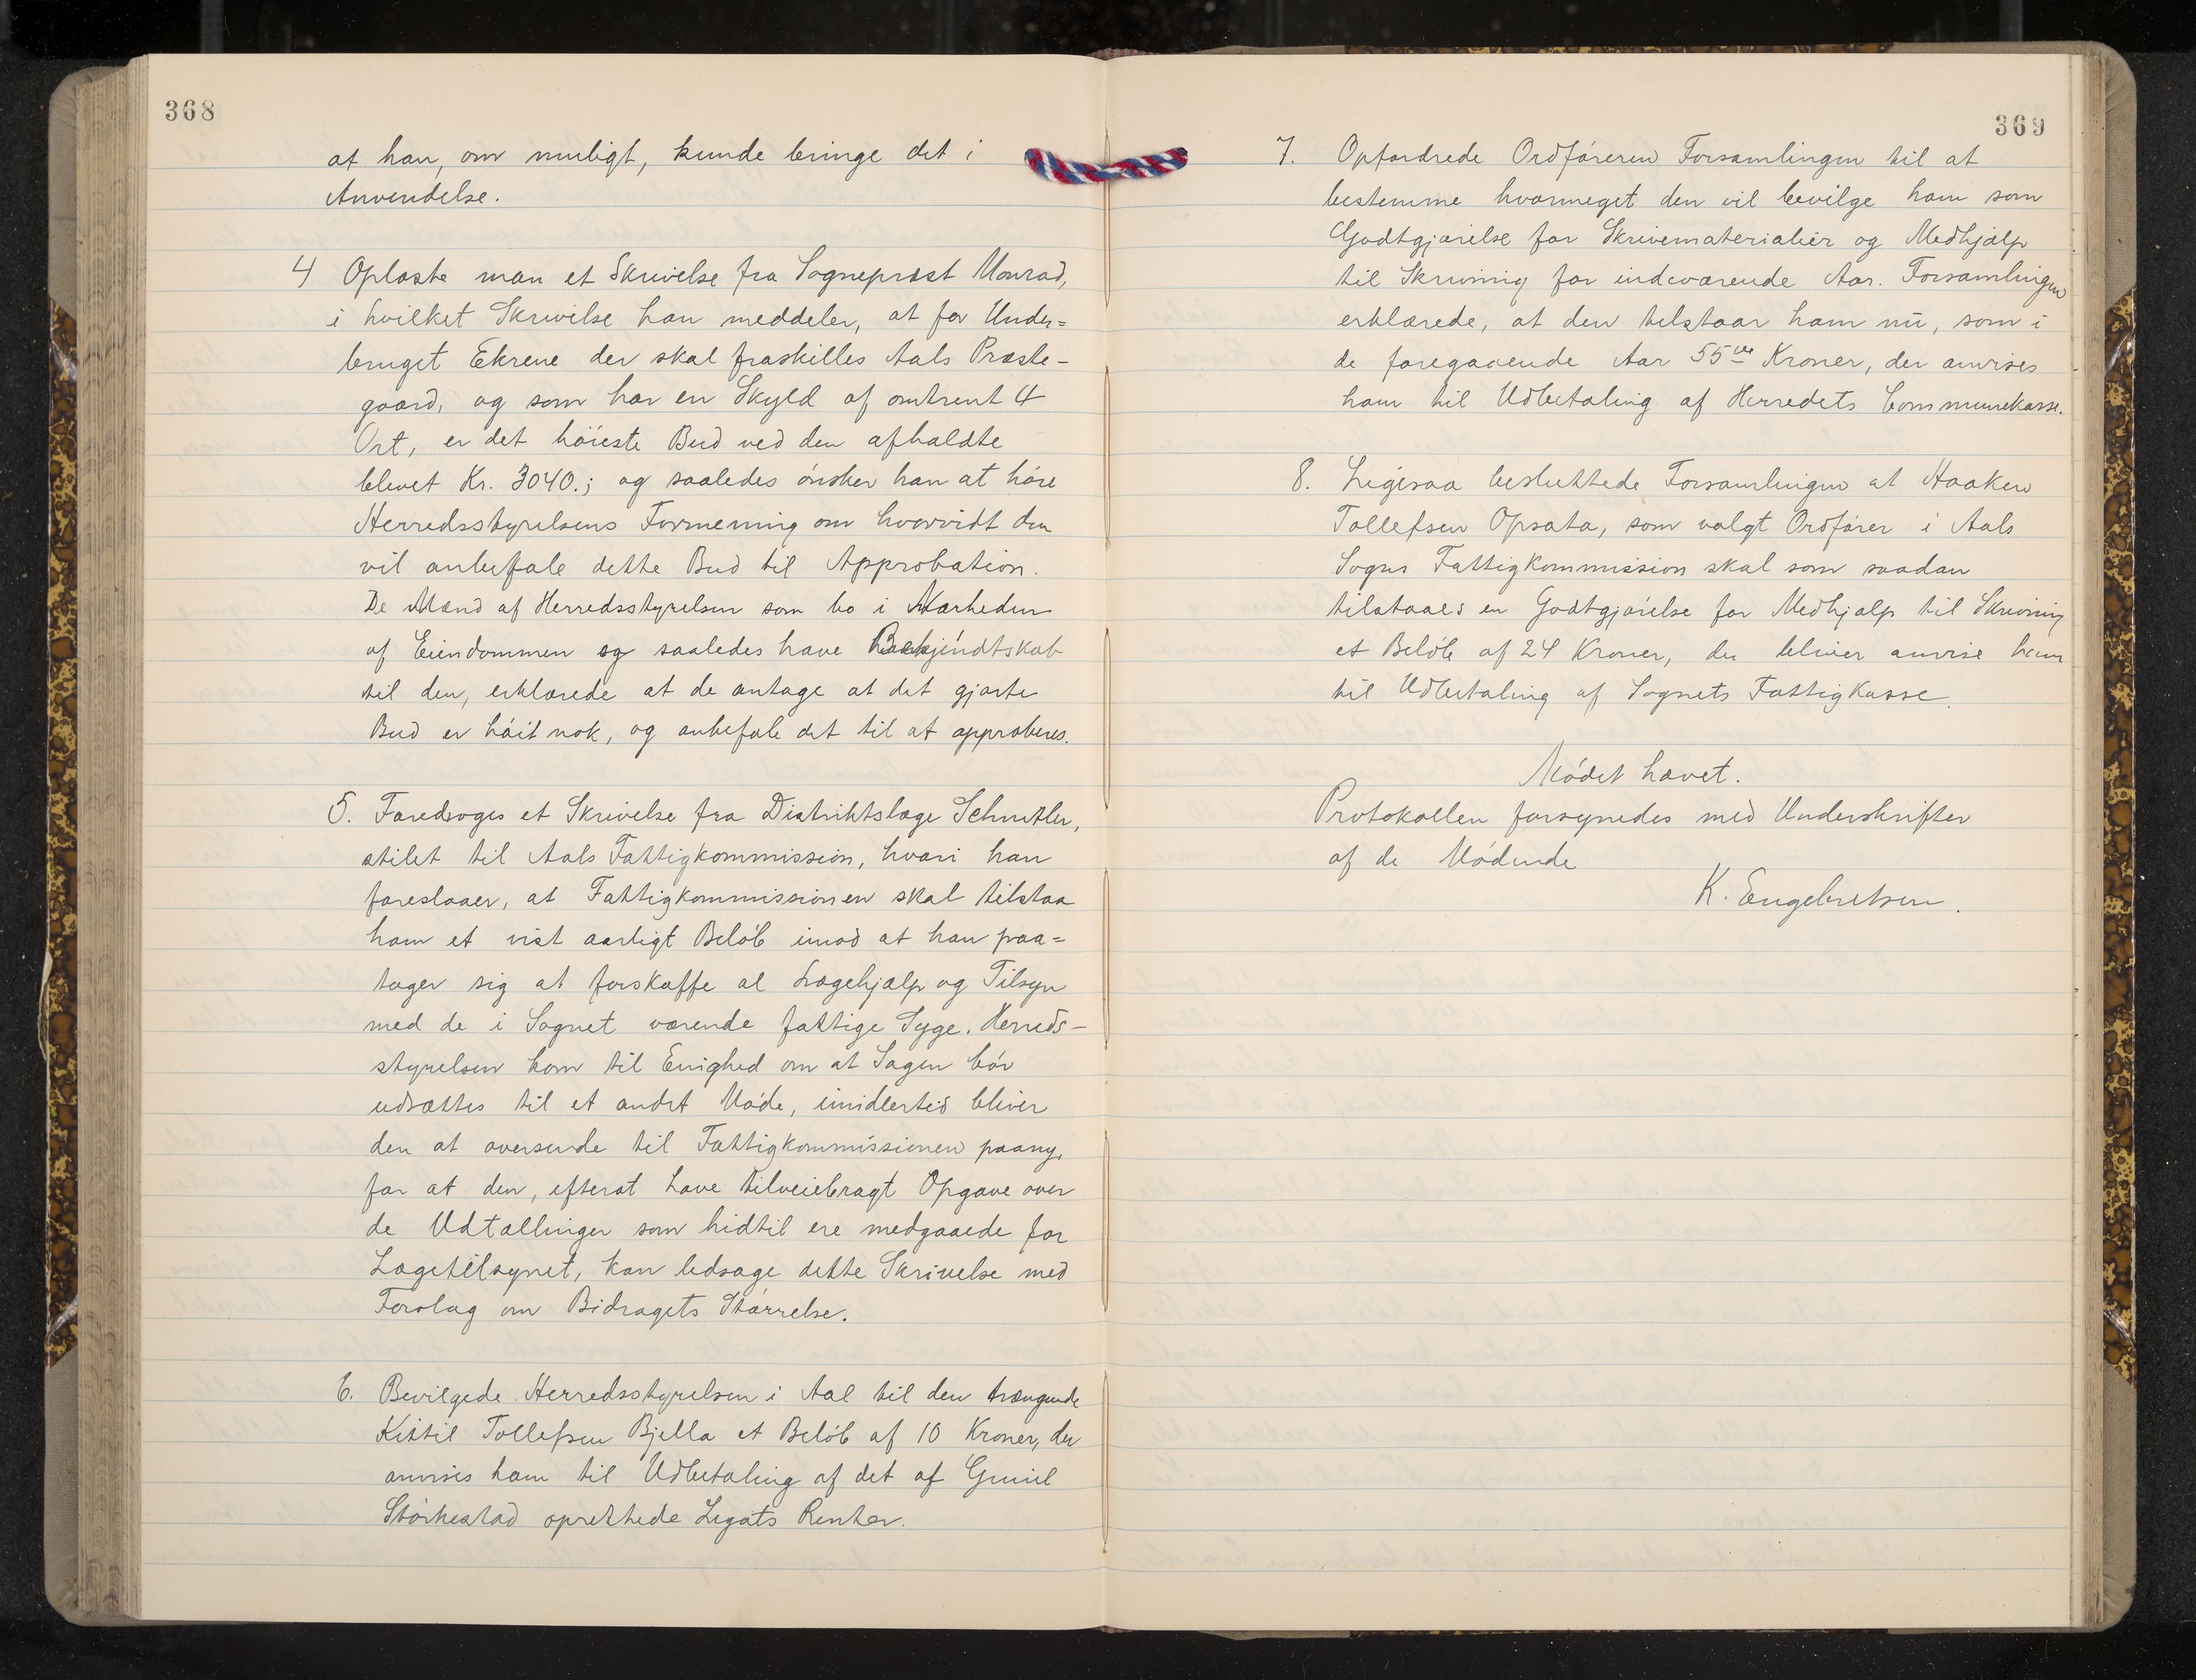 368
at han, om muligt, kunde bringe det i
Anvendelse.
4 Oplæste man et Skrivelse fra Sognepræst Monrad,
i hvilket Skrivelse han meddeler, at for Under=
bruget Ekrene der skal fraskilles Aals Præste-
gaard, og som har en Skyld af omtrent 4
Ort, er det höieste Bud ved den afholdte
blevet Kr. 3040.; og saaledes ønsker han at høre
Herredsstyrelsens Formening om hvorvidt den
vil anbefale dette Bud til Approbation.
De Mænd af Herredsstyrelsen som bo i Nærheden
af Eiendommen og saaledes have Bekjendtskab
til den, erklærede at de antage at det gjorte
Bud er høit nok, og anbefale det til at approberes.
5. Foredroges et Skrivelse fra Distriktslæge Schnitler,
stilet til Aals Fattigkommission, hvori han
foreslaaer, at Fattigkommissionen skal tilstaa
ham et vist aarligt Beløb imod at han paa=
tager sig at forskaffe al Lægehjælp og Tilsyn
med de i Sognet værende fattige Syge. Herreds-
styrelsen kom til Enighed om at Sagen bør
udsættes til et andet Møde, imidlertid bliver
den at oversende til Fattigkommissionen paany,
for at den, efterat have tilveiebragt Opgave over
de Udtællinger som hidtil ere medgaaede for
Lægetilsynet, kan ledsage dette Skrivelse med
Forslag om Bidragets Størrelse.
6. Bevilgede Herredsstyrelsen i Aal til den trængende
Kittil Tollefsen Bjella et Beløb af 10 Kroner, der
anvises ham til Udbetaling af det af Guniel
Storkestad oprettede Legats Renter.
369
7. Opfordrede Ordføreren Forsamlingen til at
bestemme hvormeget den vil bevilge ham som
Godtgjørelse for Skrivematerialier og Medhjælp
til Skrivning for indeværende Aar. Forsamlingen
erklærede, at den tilstaar ham nu, som i
de foregaaende Aar 55 Kroner, der anvises
ham til Udbetaling af Herredets Communekasse.
8. Ligesaa besluttede Forsamlingen at Haaken
Tollefsen Opsata, som valgt Ordfører i Aals
Sogns Fattigkommission skal som saadan
tilstaaes en Godtgjørelse for Medhjælp til Skrivning
et Beløb af 24 Kroner, der bliver anvise ham
til Udbetaling af Sognets Fattigkasse.
Mødet hævet.
Protokollen forsynedes med Underskrifter
af de Mødende
K. Engebretsen.